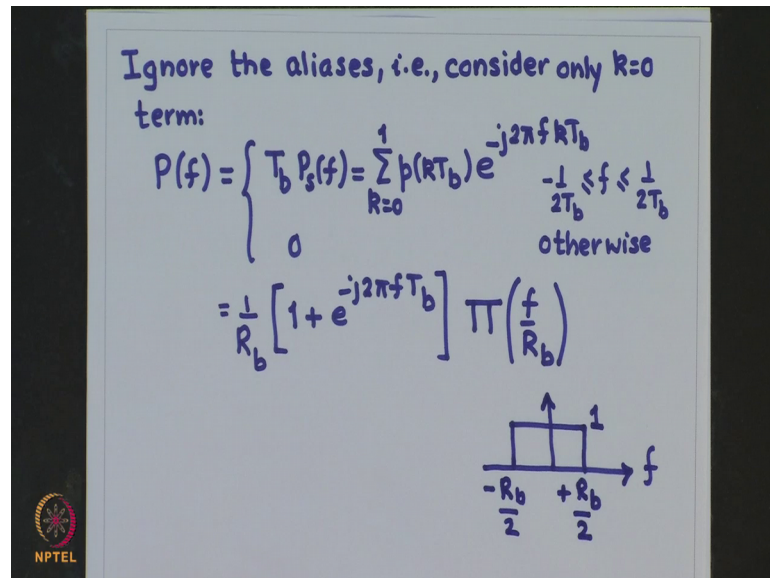 Ignore the aliases, i.e., consider only k=0
term:
P(f) = { T_b P_s(f) = Σ_{k=0}^{1} p(kT_b) e^{-j2πfkT_b}   -1/2T_b ≤ f ≤ 1/2T_b
0   otherwise
= 1/R_b [1 + e^{-j2πfT_b}] Π(f/R_b)
1
f
-R_b/2   +R_b/2
NPTEL